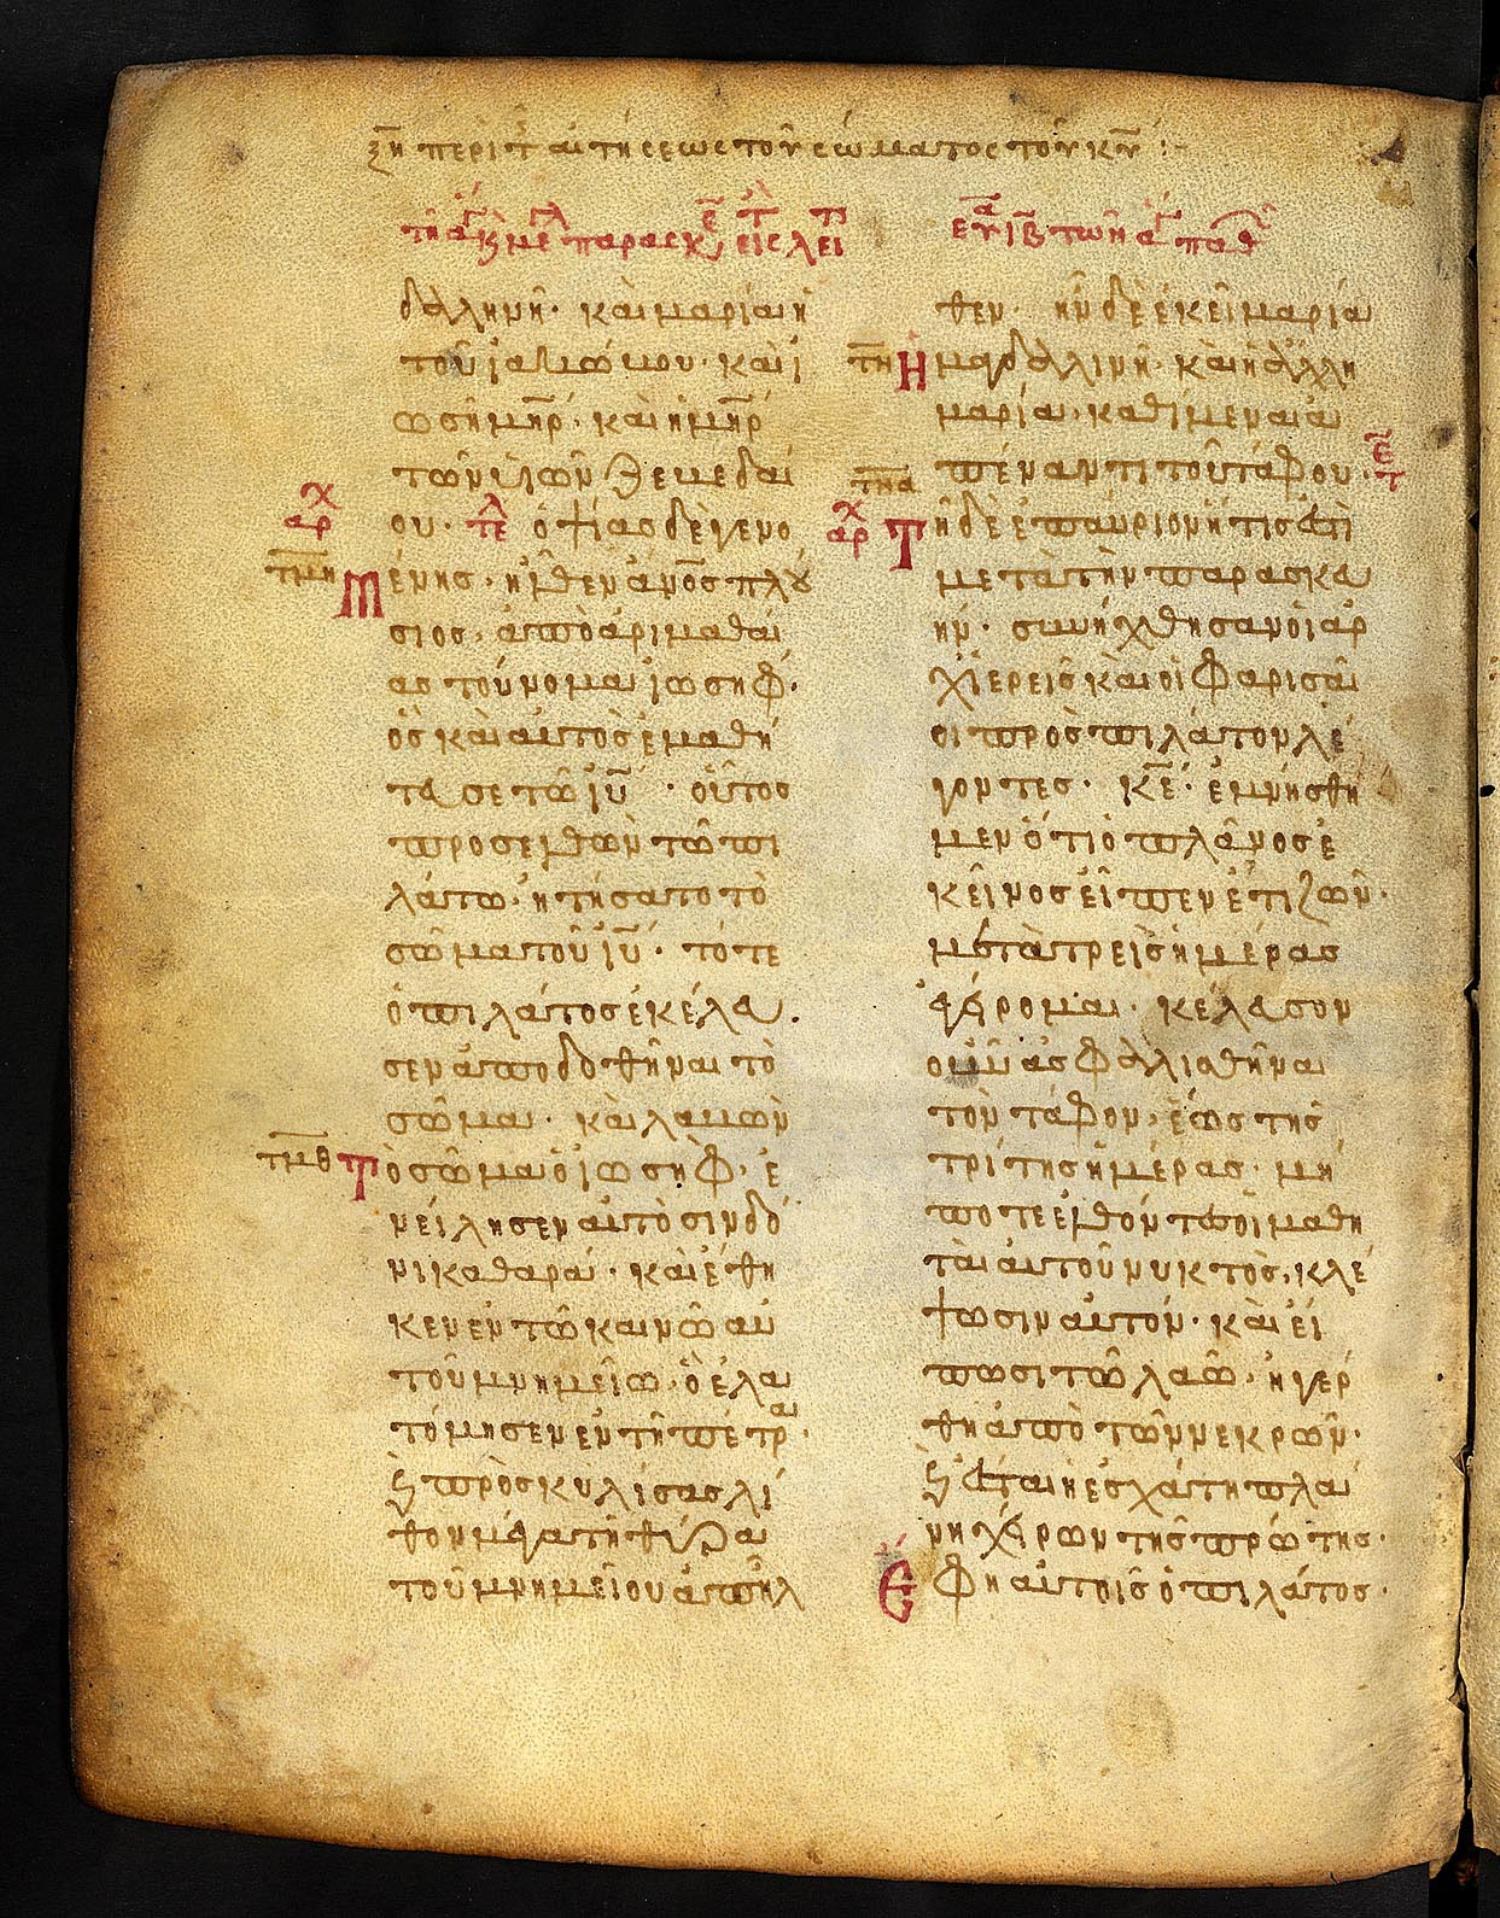 ξη περὶ τ αιτήσεως τοῦ σώματος τοῦ κυ :-
δαληνή· καὶ μαρία ἡ
τοῦ ἰακώβου· καὶ ἰ
ωσῆ μηρ· καὶ ἡ μηρ
τῶν υἱῶν ζεβεδαί
αρχ
ου· τελ ὀψίας δὲ γενο
τμη
Μ
ένης· ἦλθεν ἀνος πλού
σιος, ἀπὸ ἀριμαθαί
ας τοὔνομα ἰωσήφ·
ὃς καὶ αὐτὸς ἐμαθή
τευσε τῶ ιυ · οὗτος
προσελθὼν τῶ πι
λάτω· ἠτήσατο τὸ
σῶμα τοῦ ιυ· τότε
ὁ πιλάτος ἐκέλευ.
σεν ἀποδοθῆναι τὸ
σῶμα· καὶ λαβὼν
τμθ
Τ
ὸ σῶμα ὁ ἰωσὴφ· ἐ
νείλησεν αὐτὸ σινδό
νι καθαρᾶ· καὶ ἔθη
κεν ἐν τῶ καινῶ αὐ
τοῦ μνημείω· ὃ ἐλα
τόμησεν ἐν τῆ πέτρα·
ϛ προσκυλίσας λί
θον μέγα τῆ θύρα
τοῦ μνημείου ἀπῆλ
θεν· ἦν δὲ ἐκεῖ μαρία
τν
Η
μαγδαλινή· καὶ ἡ ἄλλη
μαρία, καθίμεναι ἀ
πέναντι τοῦ τάφου·
τνα
αρχ
Τ
ῆ δὲ ἐπαύριον ἥτις ἐστὶ
μετὰ τὴν παρασκευ
ήν· συνήχθησαν οἱ ἀρ
χιερεῖς καὶ οἱ φαρισαῖ
οι πρὸς πιλάτον λέ
γοντες· κε· ἐμνήσθη
μεν ὅτι ὁ πλάνος ἐ
κεῖνος εἶπεν ἔτι ζῶν·
μετὰ τρεῖς ἡμέρας
ἐγείρομαι· κέλευσον
οὖν ἀσφαλισθῆναι
τὸν τάφον, ἕως τῆς
τρίτης ἡμέρας· μή
ποτε ἐλθόντες οἱ μαθη
ταὶ αὐτοῦ νυκτὸς, κλέ
ψωσιν αὐτόν· καὶ εἴ
πωσι τῶ λαῶ· ἠγέρ
θη ἀπὸ τῶν νεκρῶν·
ϛ ἔσται ἡ ἐσχάτη πλά
νη χείρων τῆς πρώτης·
Ε
φη αὐτοῖς ὁ πιλάτος·